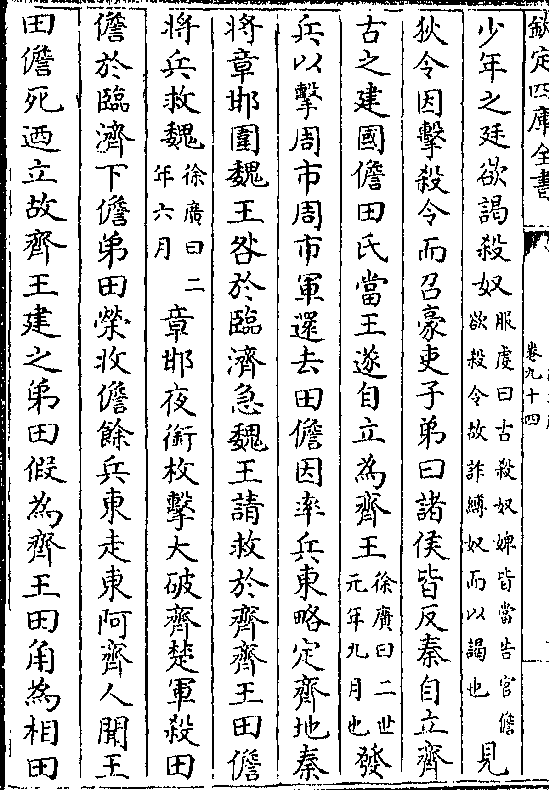 欽定四庫全書
卷九十四
少年之廷欲謁殺奴服虔曰古殺奴婢皆當告官儋欲殺令故詐縛奴而以謁也見
狄令因擊殺令而召豪吏子弟曰諸侯皆反秦自立齊
古之建國儋田氏當王遂自立為齊王徐廣曰二世元年九月也發
兵以擊周市周市軍還去田儋因率兵東略定齊地秦
將章邯圍魏王咎於臨濟急魏王請救於齊齊王田儋
將兵救魏徐廣曰二年六月章邯夜銜枚擊大破齊楚軍殺田
儋於臨濟下儋弟田榮收儋餘兵東走東阿齊人聞王
田儋死迺立故齊王建之弟田假為齊王田角為相田